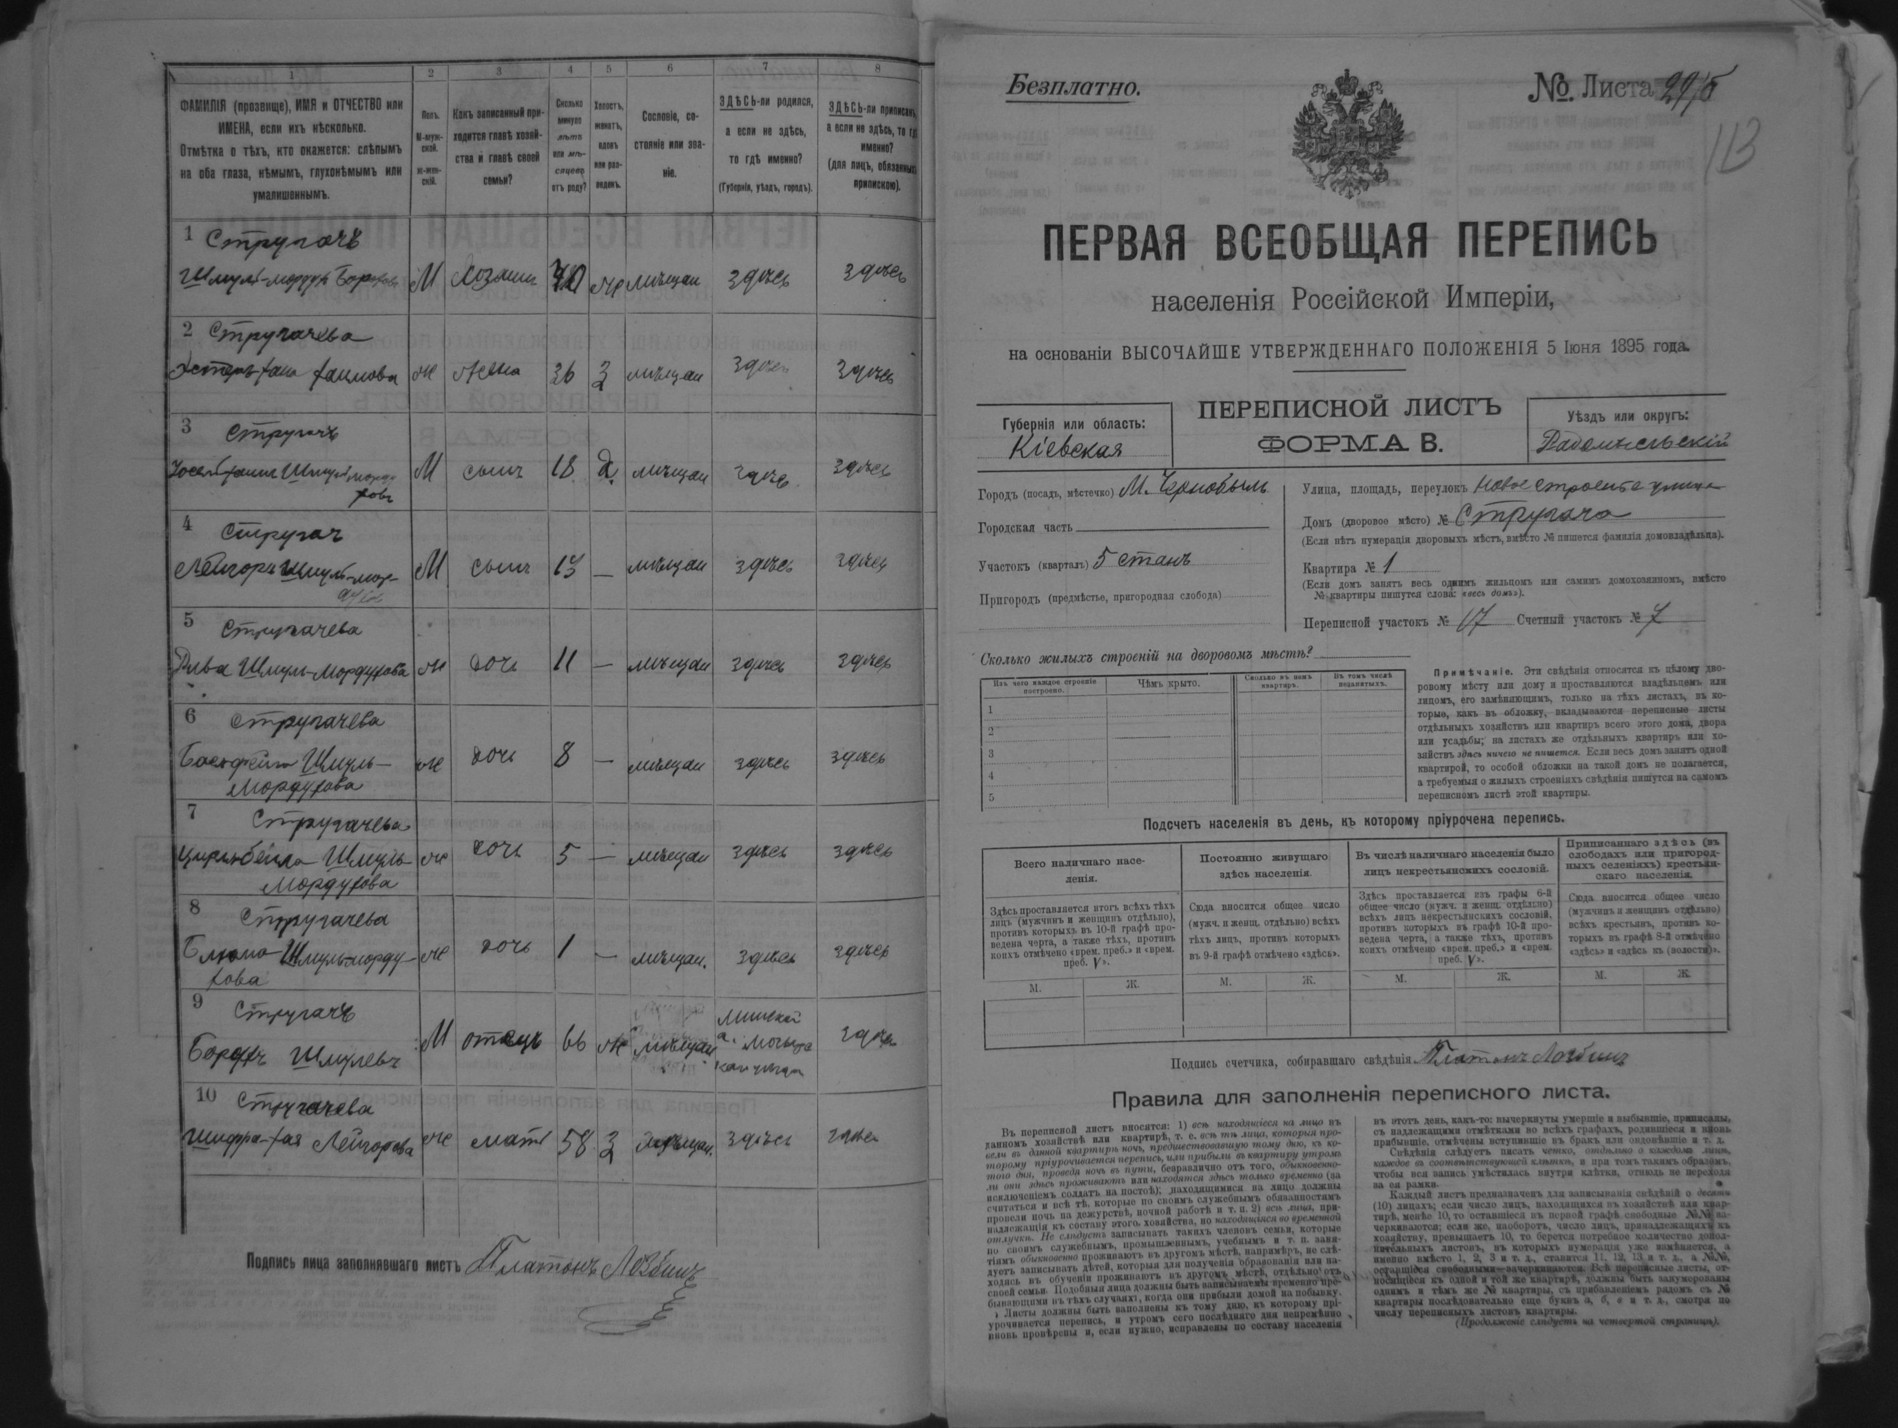 1 2 3 4 5 6 7 8
ФАМИЛІЯ (прозвище), ИМЯ и ОТЧЕСТВО или
ИМЕНА, если ихъ нѣсколько.
Отмѣтка о тѣхъ, кто окажется: слѣпымъ
на оба глаза, нѣмымъ, глухонѣмымъ или
умалишеннымъ.
Полъ.
М-муж-
ской.
ж-жен-
скій.
Какъ записанный при-
ходится главѣ хозяй-
ства и главѣ своей
семьи?
Сколько
минуло
лѣтъ
или мѣ-
сяцевъ
отъ роду?
Холостъ,
женатъ,
вдовъ
или раз-
веденъ.
Сословіе, со-
стояніе или зва-
ніе.
ЗДѢСЬ-ли родился,
а если не здѣсь,
то гдѣ именно?
(Губернія, уѣздъ, городъ).
ЗДѢСЬ-ли приписанъ,
а если не здѣсь, то гдѣ
именно?
(для лицъ, обязанныхъ
припискою).
1 Стругачъ
Шмуль-мордух М 40 мѣщан здѣсь здѣсь
2 Стругачева
ж жена 36 З мѣщан здѣсь здѣсь
3 Стругачъ
М сынъ 18 мѣщан здѣсь здѣсь
4 Стругач
М сынъ 13 — мѣщан здѣсь здѣсь
5 Стругачева
Шмуль-Мордухова ж дочь 11 — мѣщан здѣсь здѣсь
6 Стругачева
Шмуль- ж дочь 8 — мѣщан здѣсь здѣсь
Мордухова
7 Стругачева
Шмуль- ж дочь 5 — мѣщан здѣсь здѣсь
Мордухова
8 Стругачева
Блюма Шмуль-морду- ж дочь 1 — мѣщан. здѣсь здѣсь
хова
9 Стругачъ
Борухъ Шмулевъ М отецъ 66 ж мѣщан здѣсь
10 Стругачева
Шифра-Хая Лейзорова ж мать 58 З мѣщан. здѣсь здѣсь
Подпись лица заполнявшаго листъ Платонъ
Безплатно.
№. Листа
113
ПЕРВАЯ ВСЕОБЩАЯ ПЕРЕПИСЬ
населенія Россійской Имперіи,
на основаніи ВЫСОЧАЙШЕ УТВЕРЖДЕННАГО ПОЛОЖЕНІЯ 5 Іюня 1895 года.
Губернія или область:
Кіевская
ПЕРЕПИСНОЙ ЛИСТЪ
ФОРМА В.
Уѣздъ или округъ:
Радомысльскій
Городъ (посадъ, мѣстечко) М. Чернобыль
Городская часть
Участокъ (кварталъ) 5 станъ
Пригородъ (предмѣстье, пригородная слобода)
Улица, площадь, переулокъ Новое строеніе улица
Домъ (дворовое мѣсто) № Стругача
(Если нѣтъ нумераціи дворовыхъ мѣстъ, вмѣсто № пишется фамилія домовладѣльца).
Квартира № 1
(Если домъ занятъ весь однимъ жильцомъ или самимъ домохозяиномъ, вмѣсто
№ квартиры пишутся слова: «весь домъ»).
Переписной участокъ № 17 Счетный участокъ № 7
Сколько жилыхъ строеній на дворовомъ мѣстѣ?
Изъ чего каждое строеніе
построено.
Чѣмъ крыто.
Сколько въ немъ
квартиръ.
Въ томъ числѣ
незанятыхъ.
1
2
3
4
5
Примѣчаніе. Эти свѣдѣнія относятся къ цѣлому дво-
ровому мѣсту или дому и проставляются владѣльцемъ или
лицомъ, его замѣняющимъ, только на тѣхъ листахъ, въ ко-
торые, какъ въ обложку, вкладываются переписные листы
отдѣльныхъ хозяйствъ или квартиръ всего этого дома, двора
или усадьбы; на листахъ же отдѣльныхъ квартиръ или хо-
зяйствъ здѣсь ничего не пишется. Если весь домъ занятъ одной
квартирой, то особой обложки на такой домъ не полагается,
а требуемыя о жилыхъ строеніяхъ свѣдѣнія пишутся на самомъ
переписномъ листѣ этой квартиры.
Подсчетъ населенія въ день, къ которому пріурочена перепись.
Всего наличнаго насе-
ленія.
Постоянно живущаго
здѣсь населенія.
Въ числѣ наличнаго населенія было
лицъ некрестьянскихъ сословій.
Приписаннаго здѣсь (въ
слободахъ или пригород-
ныхъ селеніяхъ) крестьян-
скаго населенія.
Здѣсь проставляется итогъ всѣхъ тѣхъ
лицъ (мужчинъ и женщинъ отдѣльно),
противъ которыхъ въ 10-й графѣ про-
ведена черта, а также тѣхъ, противъ
коихъ отмѣчено «врем. преб.» и «врем.
преб. V».
Сюда вносится общее число
(мужч. и женщ. отдѣльно) всѣхъ
тѣхъ лицъ, противъ которыхъ
въ 9-й графѣ отмѣчено «здѣсь».
Здѣсь проставляется изъ графы 6-й
общее число (мужч. и женщ. отдѣльно)
всѣхъ лицъ некрестьянскихъ сословій,
противъ которыхъ въ графѣ 10-й про-
ведена черта, а также тѣхъ, противъ
коихъ отмѣчено «врем. преб.» и «врем.
преб. V».
Сюда вносится общее число
(мужчинъ и женщинъ отдѣльно)
всѣхъ крестьянъ, противъ ко-
торыхъ въ графѣ 8-й отмѣчено
«здѣсь» и «здѣсь къ (волости)».
М. Ж. М. Ж. М. Ж. М. Ж.
Подпись счетчика, собиравшаго свѣдѣнія Платонъ
Правила для заполненія переписного листа.
Въ переписной листъ вносятся: 1) всѣ находящіеся на лицо въ
данномъ хозяйствѣ или квартирѣ, т. е. всѣ тѣ лица, которыя про-
вели въ данной квартирѣ ночь, предшествовавшую тому дню, къ ко-
торому пріурочивается перепись, или прибыли въ квартиру утромъ
этого дня, проведя ночь въ пути, безразлично отъ того, обыкновенно-
ли они здѣсь проживаютъ или находятся здѣсь только временно (за
исключеніемъ солдатъ на постоѣ); находящимися на лицо должны
считаться и всѣ тѣ, которые по своимъ служебнымъ обязанностямъ
провели ночь на дежурствѣ, ночной работѣ и т. п. 2) всѣ лица, при-
надлежащія къ составу этого хозяйства, но находящіяся во временной
отлучкѣ. Не слѣдуетъ записывать такихъ членовъ семьи, которые
по своимъ служебнымъ, промышленнымъ, учебнымъ и т. п. заня-
тіямъ обыкновенно проживаютъ въ другомъ мѣстѣ, напримѣръ, не слѣ-
дуетъ записывать дѣтей, которыя для полученія образованія или на-
ходясь въ обученіи проживаютъ въ другомъ мѣстѣ, отдѣльно отъ
своей семьи. Подобныя лица должны быть записываемы временно пре-
бывающими въ тѣхъ случаяхъ, когда они прибыли домой на побывку.
Листы должны быть заполнены къ тому дню, къ которому прі-
урочивается перепись, и утромъ сего послѣдняго дня непремѣнно
вновь провѣрены и, если нужно, исправлены по составу населенія
въ этотъ день, какъ-то: вычеркнуты умершіе и выбывшіе, приписаны,
съ надлежащими отмѣтками во всѣхъ графахъ, родившіеся и вновь
прибывшіе, отмѣчены вступившіе въ бракъ или овдовѣвшіе и т. д.
Свѣдѣнія слѣдуетъ писать четко, отдѣльно о каждомъ лицѣ,
каждое въ соотвѣтствующей клѣткѣ, и при томъ такимъ образомъ,
чтобы вся запись умѣстилась внутри клѣтки, отнюдь не переходя
за ея рамки.
Каждый листъ предназначенъ для записыванія свѣдѣній о десяти
(10) лицахъ; если число лицъ, находящихся въ хозяйствѣ или квар-
тирѣ, менѣе 10, то оставшіеся въ первой графѣ свободные №№ за-
черкиваются; если же, наоборотъ, число лицъ, принадлежащихъ къ
хозяйству, превышаетъ 10, то берется потребное количество допол-
нительныхъ листовъ, въ которыхъ нумерація уже измѣняется, а
именно вмѣсто 1, 2, 3 и т. д., ставится 11, 12, 13 и т. д., а №№,
остающіеся свободными—зачеркиваются. Всѣ переписные листы, от-
носящіеся къ одной и той же квартирѣ, должны быть занумерованы
однимъ и тѣмъ же № квартиры, съ прибавленіемъ рядомъ съ №
квартиры послѣдовательно еще буквъ а, б, в и т. д., смотря по
числу переписныхъ листовъ квартиры.
(Продолженіе слѣдуетъ на четвертой страницѣ).